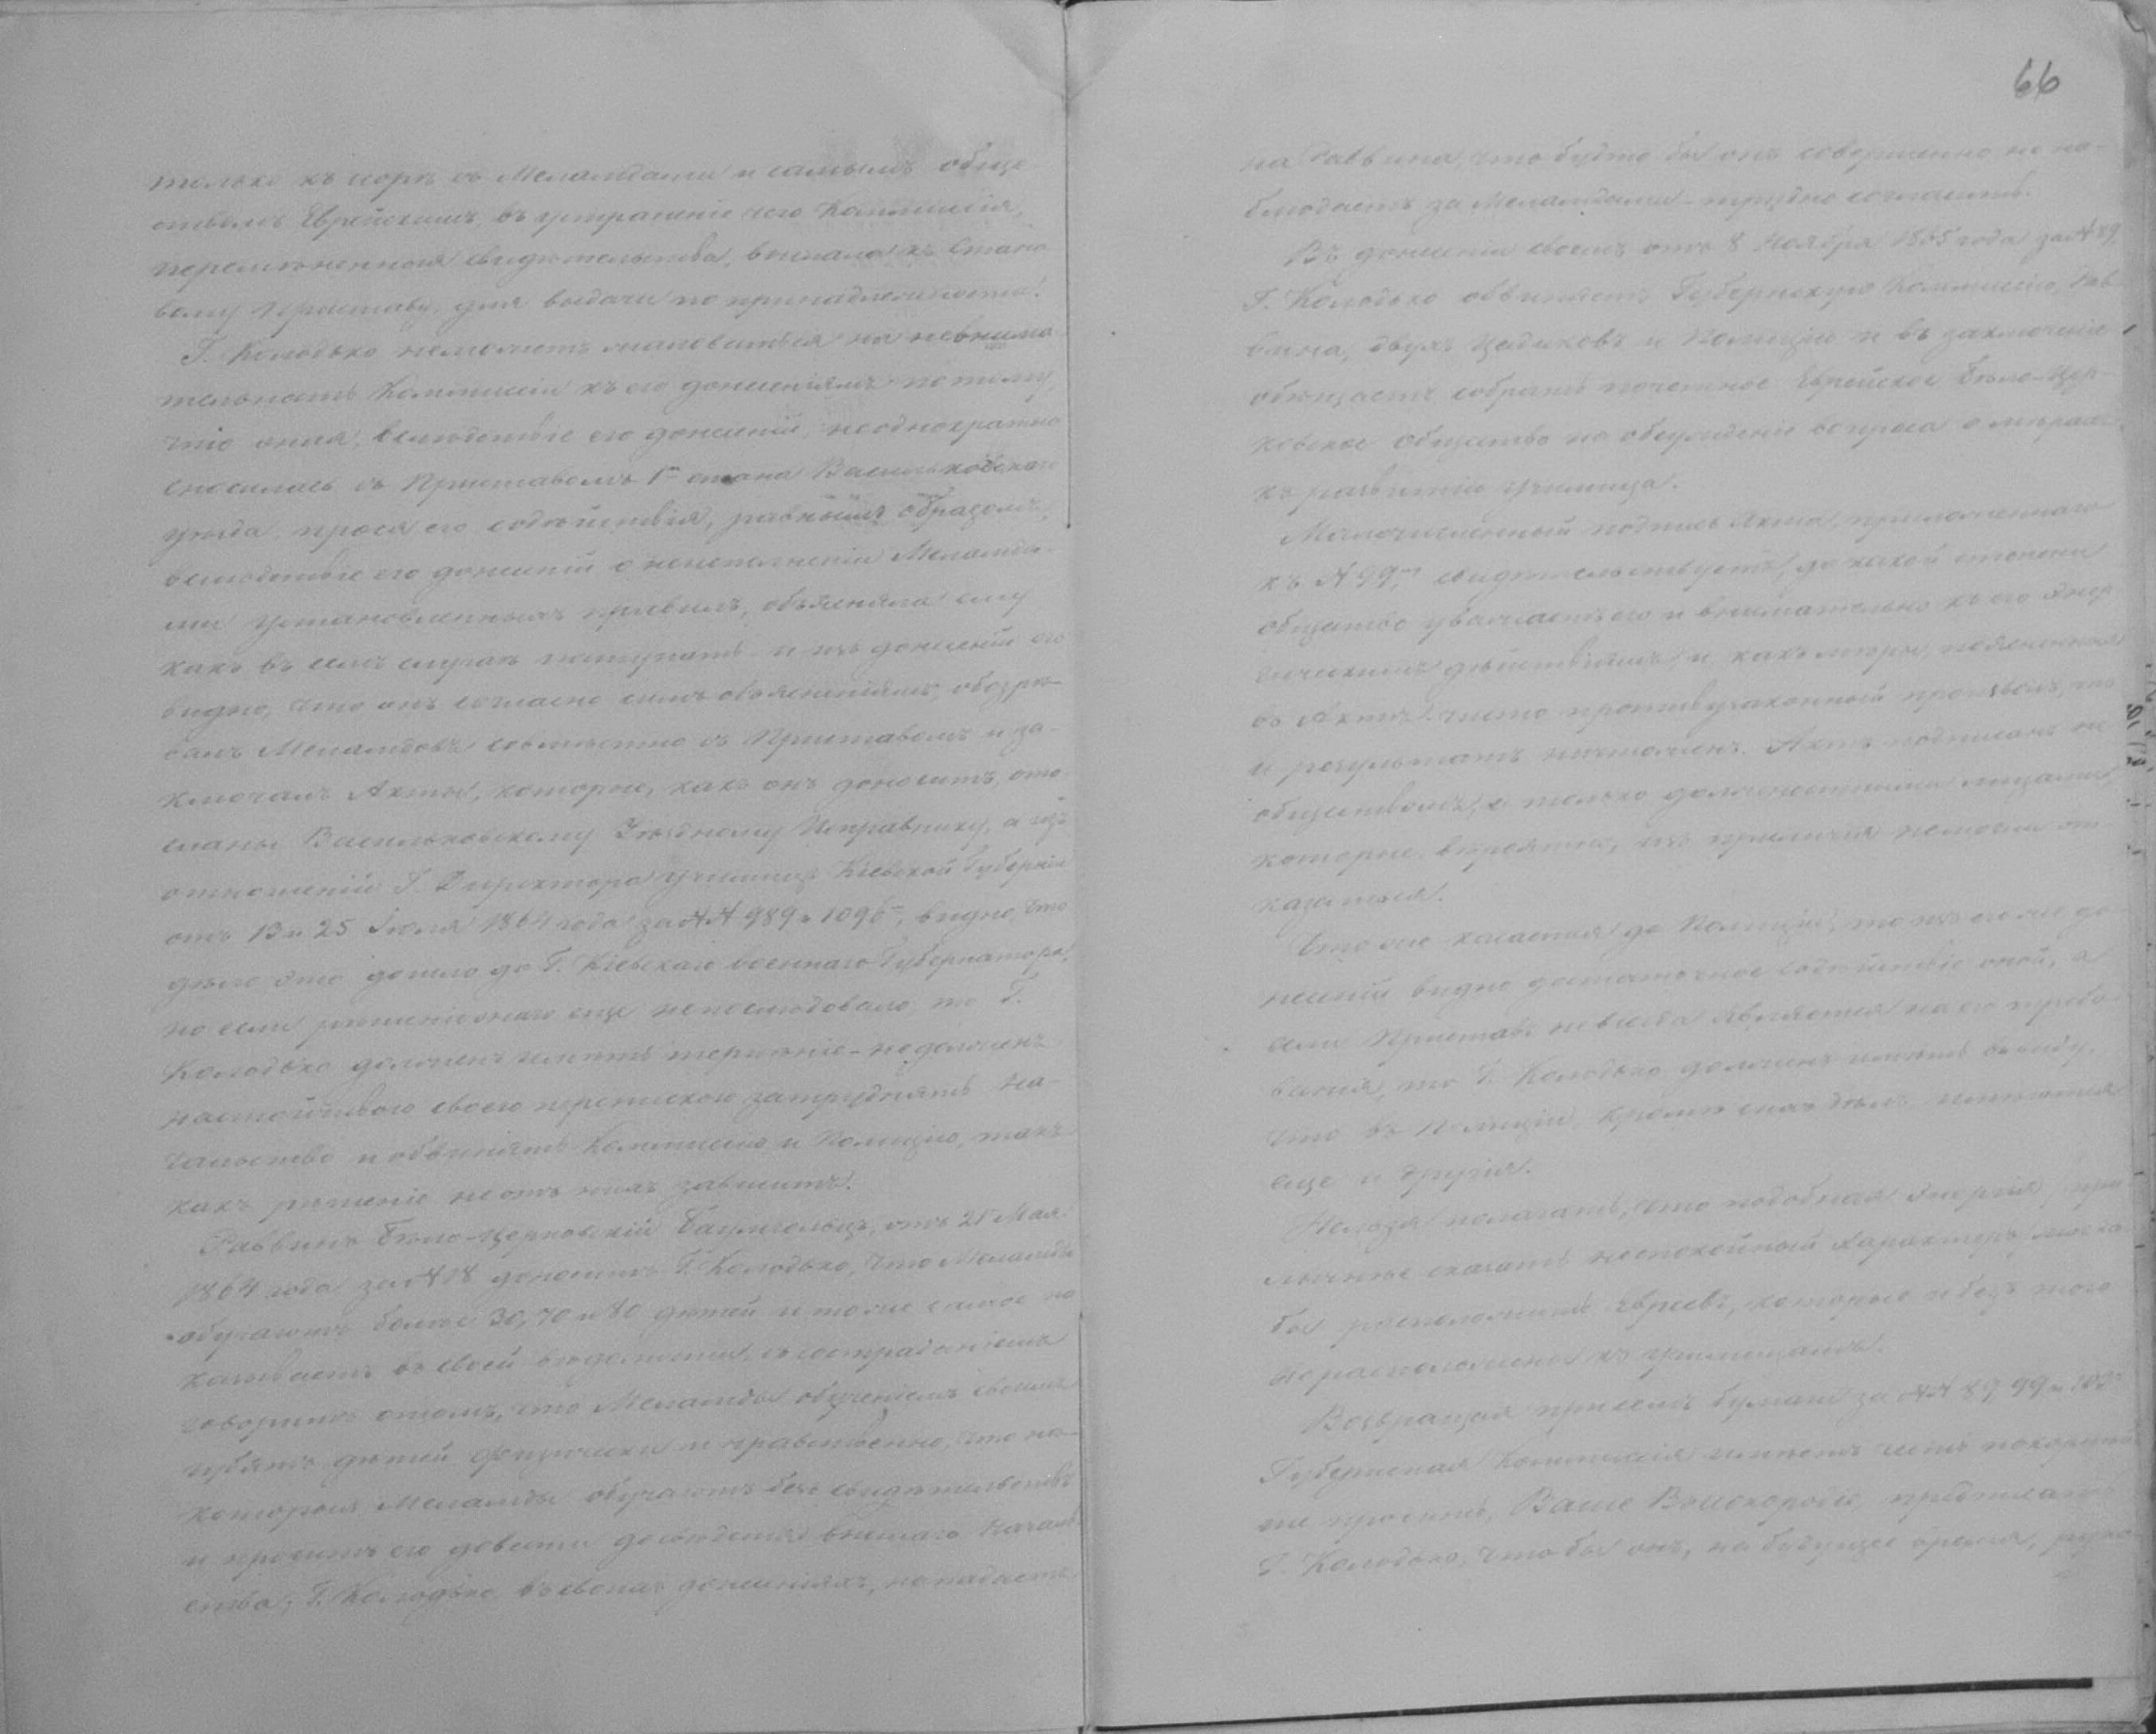 только къ ссорѣ съ Меламдами и самымъ обще
ствомъ Еврейскимъ, въ устраненіе чего Коммиссія,
свидѣтельства, выслала къ Стано
вому Приставу, для выдачи по принадлежности.
Г. Колодько неможетъ жаловаться на невнима
тельность Коммиссіи къ его донесеніямъ потому,
что оная, вслѣдствіе его донесеній, неоднократно
сносилась съ Приставомъ 1го стана Васильковскаго
уѣзда, прося его содѣйствія, равнымъ образомъ,
вслѣдствіе его донесеній о неисполненіи Меламда
ми установленныхъ правилъ, объясняла ему
какъ въ семъ случаѣ поступать и изъ донесеній его
видно, что онъ согласно симъ объясненіямъ, обозрѣ
валъ Меламдовъ совмѣстно съ Приставомъ и за-
ключалъ Акты, которые, какъ онъ доноситъ, ото
сланы Васильковскому Уѣздному Исправнику, а изъ
отношеній Г. Директора училищъ Кіевской губерніи
отъ 13 и 25 Іюля 1864 года за №№ 989 и 1096, видно, что
дѣло это дошло до Г. Кіевскаго военнаго Губернатора,
но если рѣшенія онаго еще непослѣдовало, то Г.
Колодько долженъ имѣть терпѣніе - недолженъ
настойчивою своею перепискою затруднять на-
чальство и обвинять Коммиссію и Полицію, такъ
какъ рѣшеніе не отъ нихъ зависитъ.
Раввинъ Бѣло-Церковскій Баумгольцъ, отъ 21 Мая
1864 года за № 18 доноситъ Г. Колодько, что Меламды
обучаютъ болѣе 30, 70 и 80 дѣтей и тоже самое по
казываетъ въ своей вѣдомости, съ состраданіемъ
говоритъ о томъ, что Меламды обученіемъ своимъ
губятъ дѣтей физически и нравственно, что нѣ-
которые Меламды обучаютъ безъ свидѣтельствъ
и проситъ его довести до свѣдѣнія высшаго Началь
ства; Г. Колодько въ своихъ донесеніяхъ, нападаетъ
66
на Раввина, что будто бы онъ совершенно не на-
блюдаетъ за Меламдами - трудно согласить.
Въ донесеніи своемъ отъ 8 Ноября 1865 года за № 89,
Г. Колодько обвиняетъ Губернскую Коммиссію, Рав
вина, двухъ Цадиковъ и Полицію и въ заключеніе
обѣщаетъ собрать почетное Еврейское Бѣло-Цер-
ковское общество на обсужденіе вопроса о мѣрахъ
къ развитію училища.
Малочисленный подпись Акта, приложеннаго
къ № 99, свидѣтельствуетъ, до какой степени
общество уважаетъ его и внимательно къ его энер
гическимъ дѣйствіямъ и какъ мѣры, поясненныя
въ Актѣ чисто противузаконный произволъ, то
и результатъ ничтоженъ. Актъ подписанъ не
обществомъ, а только должностными лицами,
которые, вѣроятно, изъ приличія немогли от-
казаться.
Что же касается до Полиціи, то изъ его же до
несеній видно достаточное содѣйствіе оной, а
если Приставъ не всегда является на его требо
ванія, то Г. Колодько долженъ имѣть въ виду,
что въ Полиціи кромѣ сихъ дѣлъ имѣются
еще и другія.
Нельзя полагать, что подобная энергія
сказать неспокойный характеръ, могла
бы расположить Евреевъ, которые и безъ того
нерасположены къ училищамъ.
Возвращая при семъ бумаги за №№ 89, 99 и 102
Губернская Коммиссія имѣетъ честь покорнѣй
ше просить, Ваше Высокородіе, предписать
Г. Колодько, чтобы онъ, на будущее время, руко